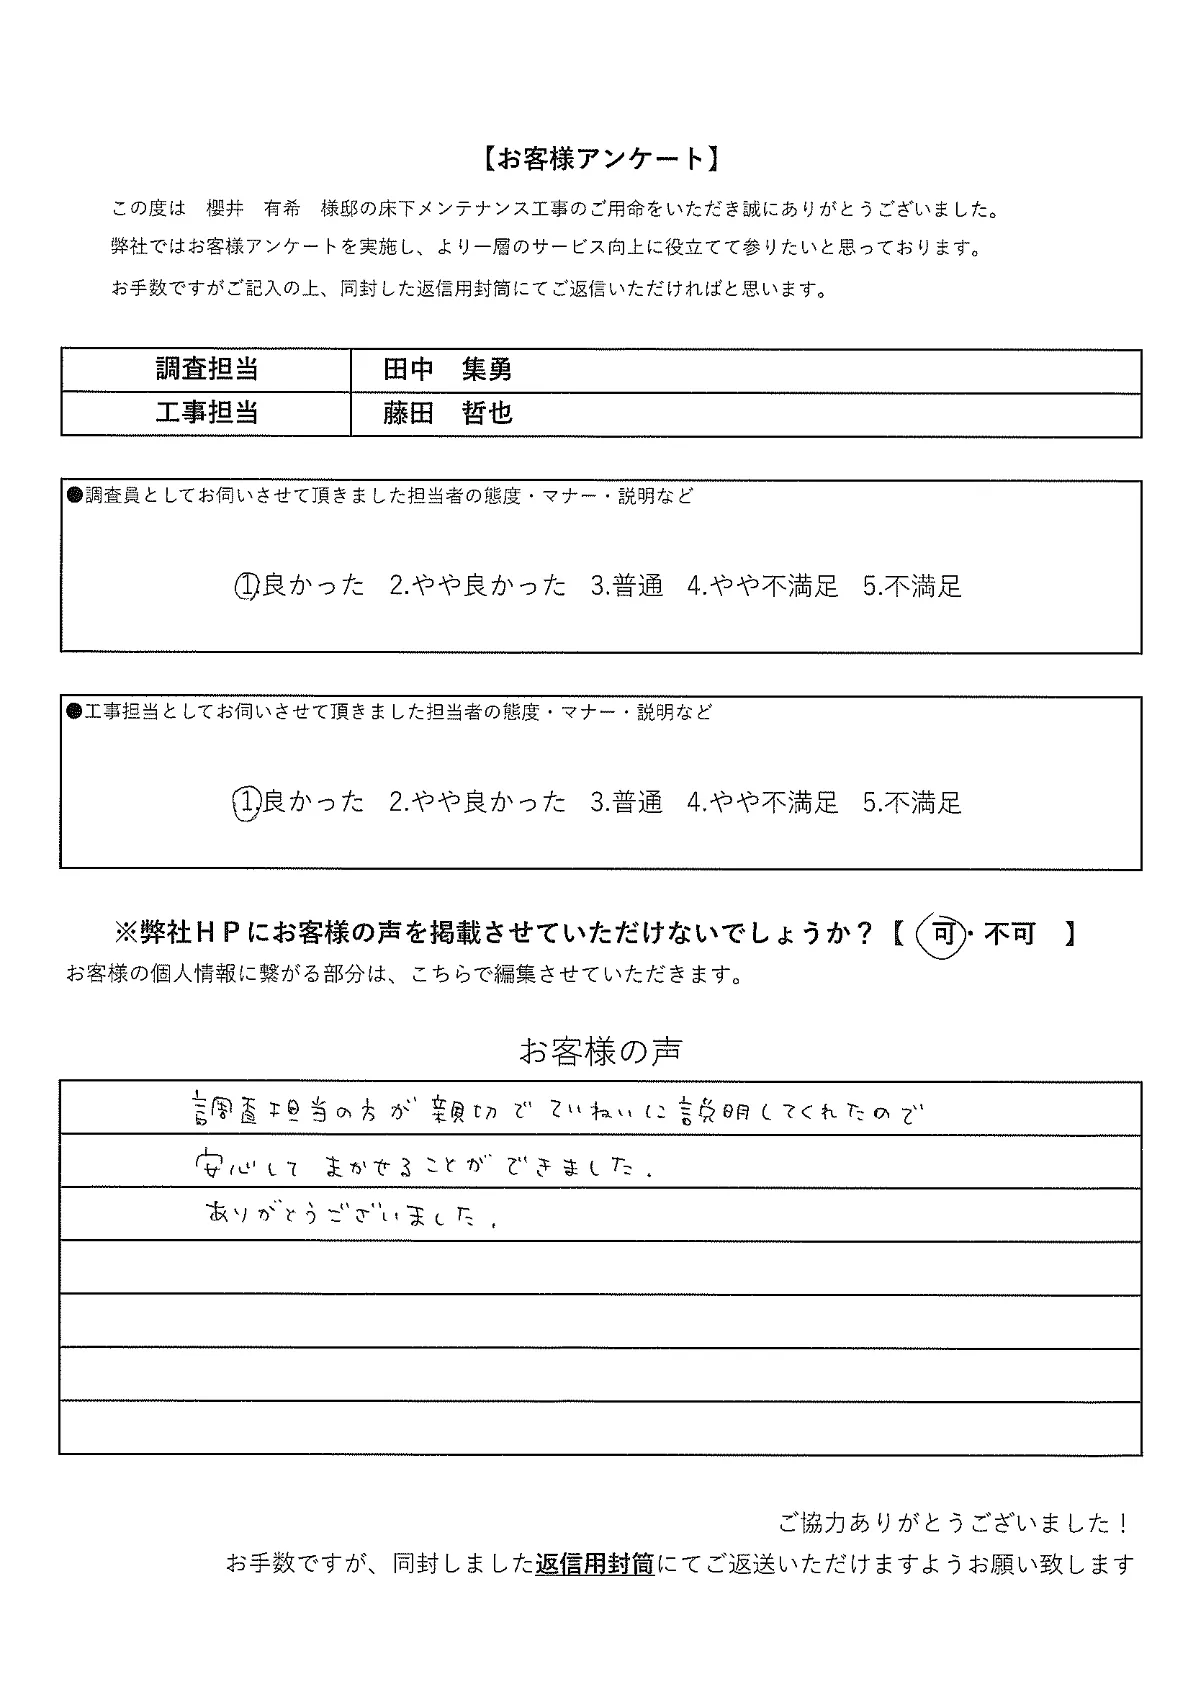 【お客様アンケート】
この度は　櫻井　有希　様邸の床下メンテナンス工事のご用命をいただき誠にありがとうございました。
弊社ではお客様アンケートを実施し、より一層のサービス向上に役立てて参りたいと思っております。
お手数ですがご記入の上、同封した返信用封筒にてご返信いただければと思います。
調査担当　田中　集勇
工事担当　藤田　哲也
●調査員としてお伺いさせて頂きました担当者の態度・マナー・説明など
1.良かった　2.やや良かった　3.普通　4.やや不満足　5.不満足
●工事担当としてお伺いさせて頂きました担当者の態度・マナー・説明など
1.良かった　2.やや良かった　3.普通　4.やや不満足　5.不満足
※弊社ＨＰにお客様の声を掲載させていただけないでしょうか？【　可・不可　】
お客様の個人情報に繋がる部分は、こちらで編集させていただきます。
お客様の声
調査担当の方が親切でていねいに説明してくれたので
安心してまかせることができました.
ありがとうございました.
ご協力ありがとうございました！
お手数ですが、同封しました返信用封筒にてご返送いただけますようお願い致します